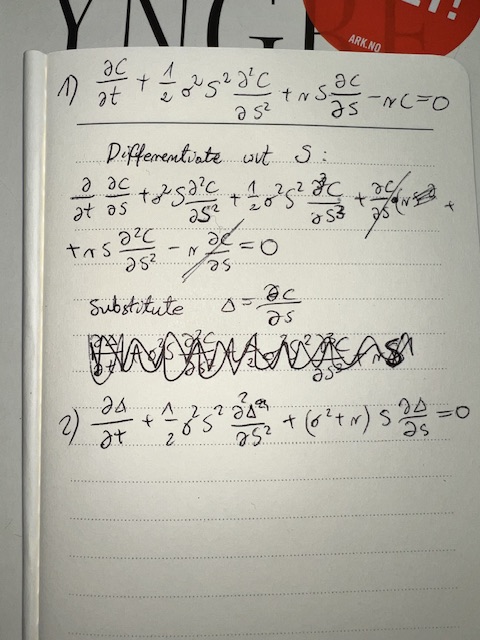 YNGRE
ET!
ARK.NO
1) ∂C/∂t + 1/2 σ²S² ∂²C/∂S² + rS ∂C/∂S − rC = 0
Differentiate wrt S:
∂/∂t ∂C/∂S + σ²S ∂²C/∂S² + 1/2 σ²S² ∂³C/∂S³ + ∂C/∂S r +
+ rS ∂²C/∂S² − r ∂C/∂S = 0
Substitute Δ = ∂C/∂S
2) ∂Δ/∂t + 1/2 σ²S² ∂²Δ/∂S² + (σ² + r) S ∂Δ/∂S = 0